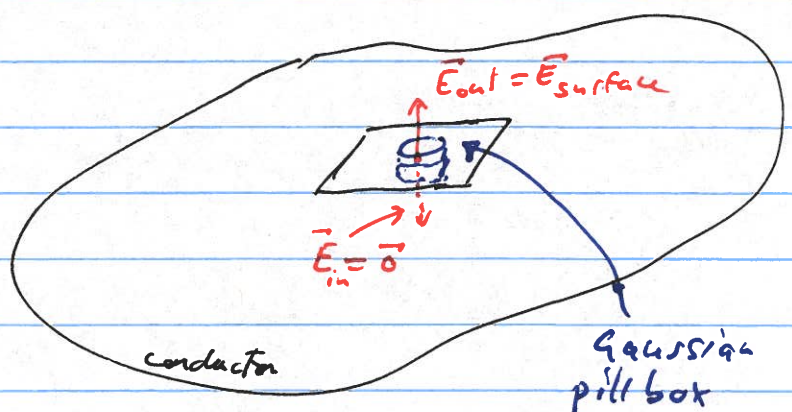 E⃗out = E⃗surface
E⃗in = 0⃗
conductor
Gaussian
pillbox